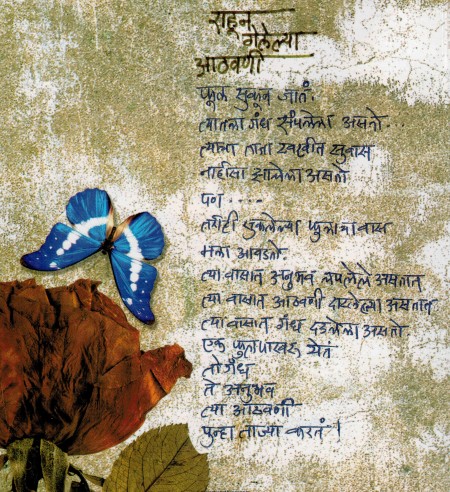 राहून
गेलेल्या
आठवणी
फूल सुकून जातं.
त्यातला गंध संपलेला असतो...
त्याचा ताजा टवटवीत सुवास
नाहीसा झालेला असतो
पण....
तरीही सुकलेल्या फुलाचा वास
मला आवडतो.
त्या वासात अनुभव लपलेले असतात
त्या वासात आठवणी दाटलेल्या असतात
त्या वासात गंध दडलेला असतो.
एक फुलपाखरू येतं
तो गंध
ते अनुभव
त्या आठवणी
पुन्हा ताज्या करतं!